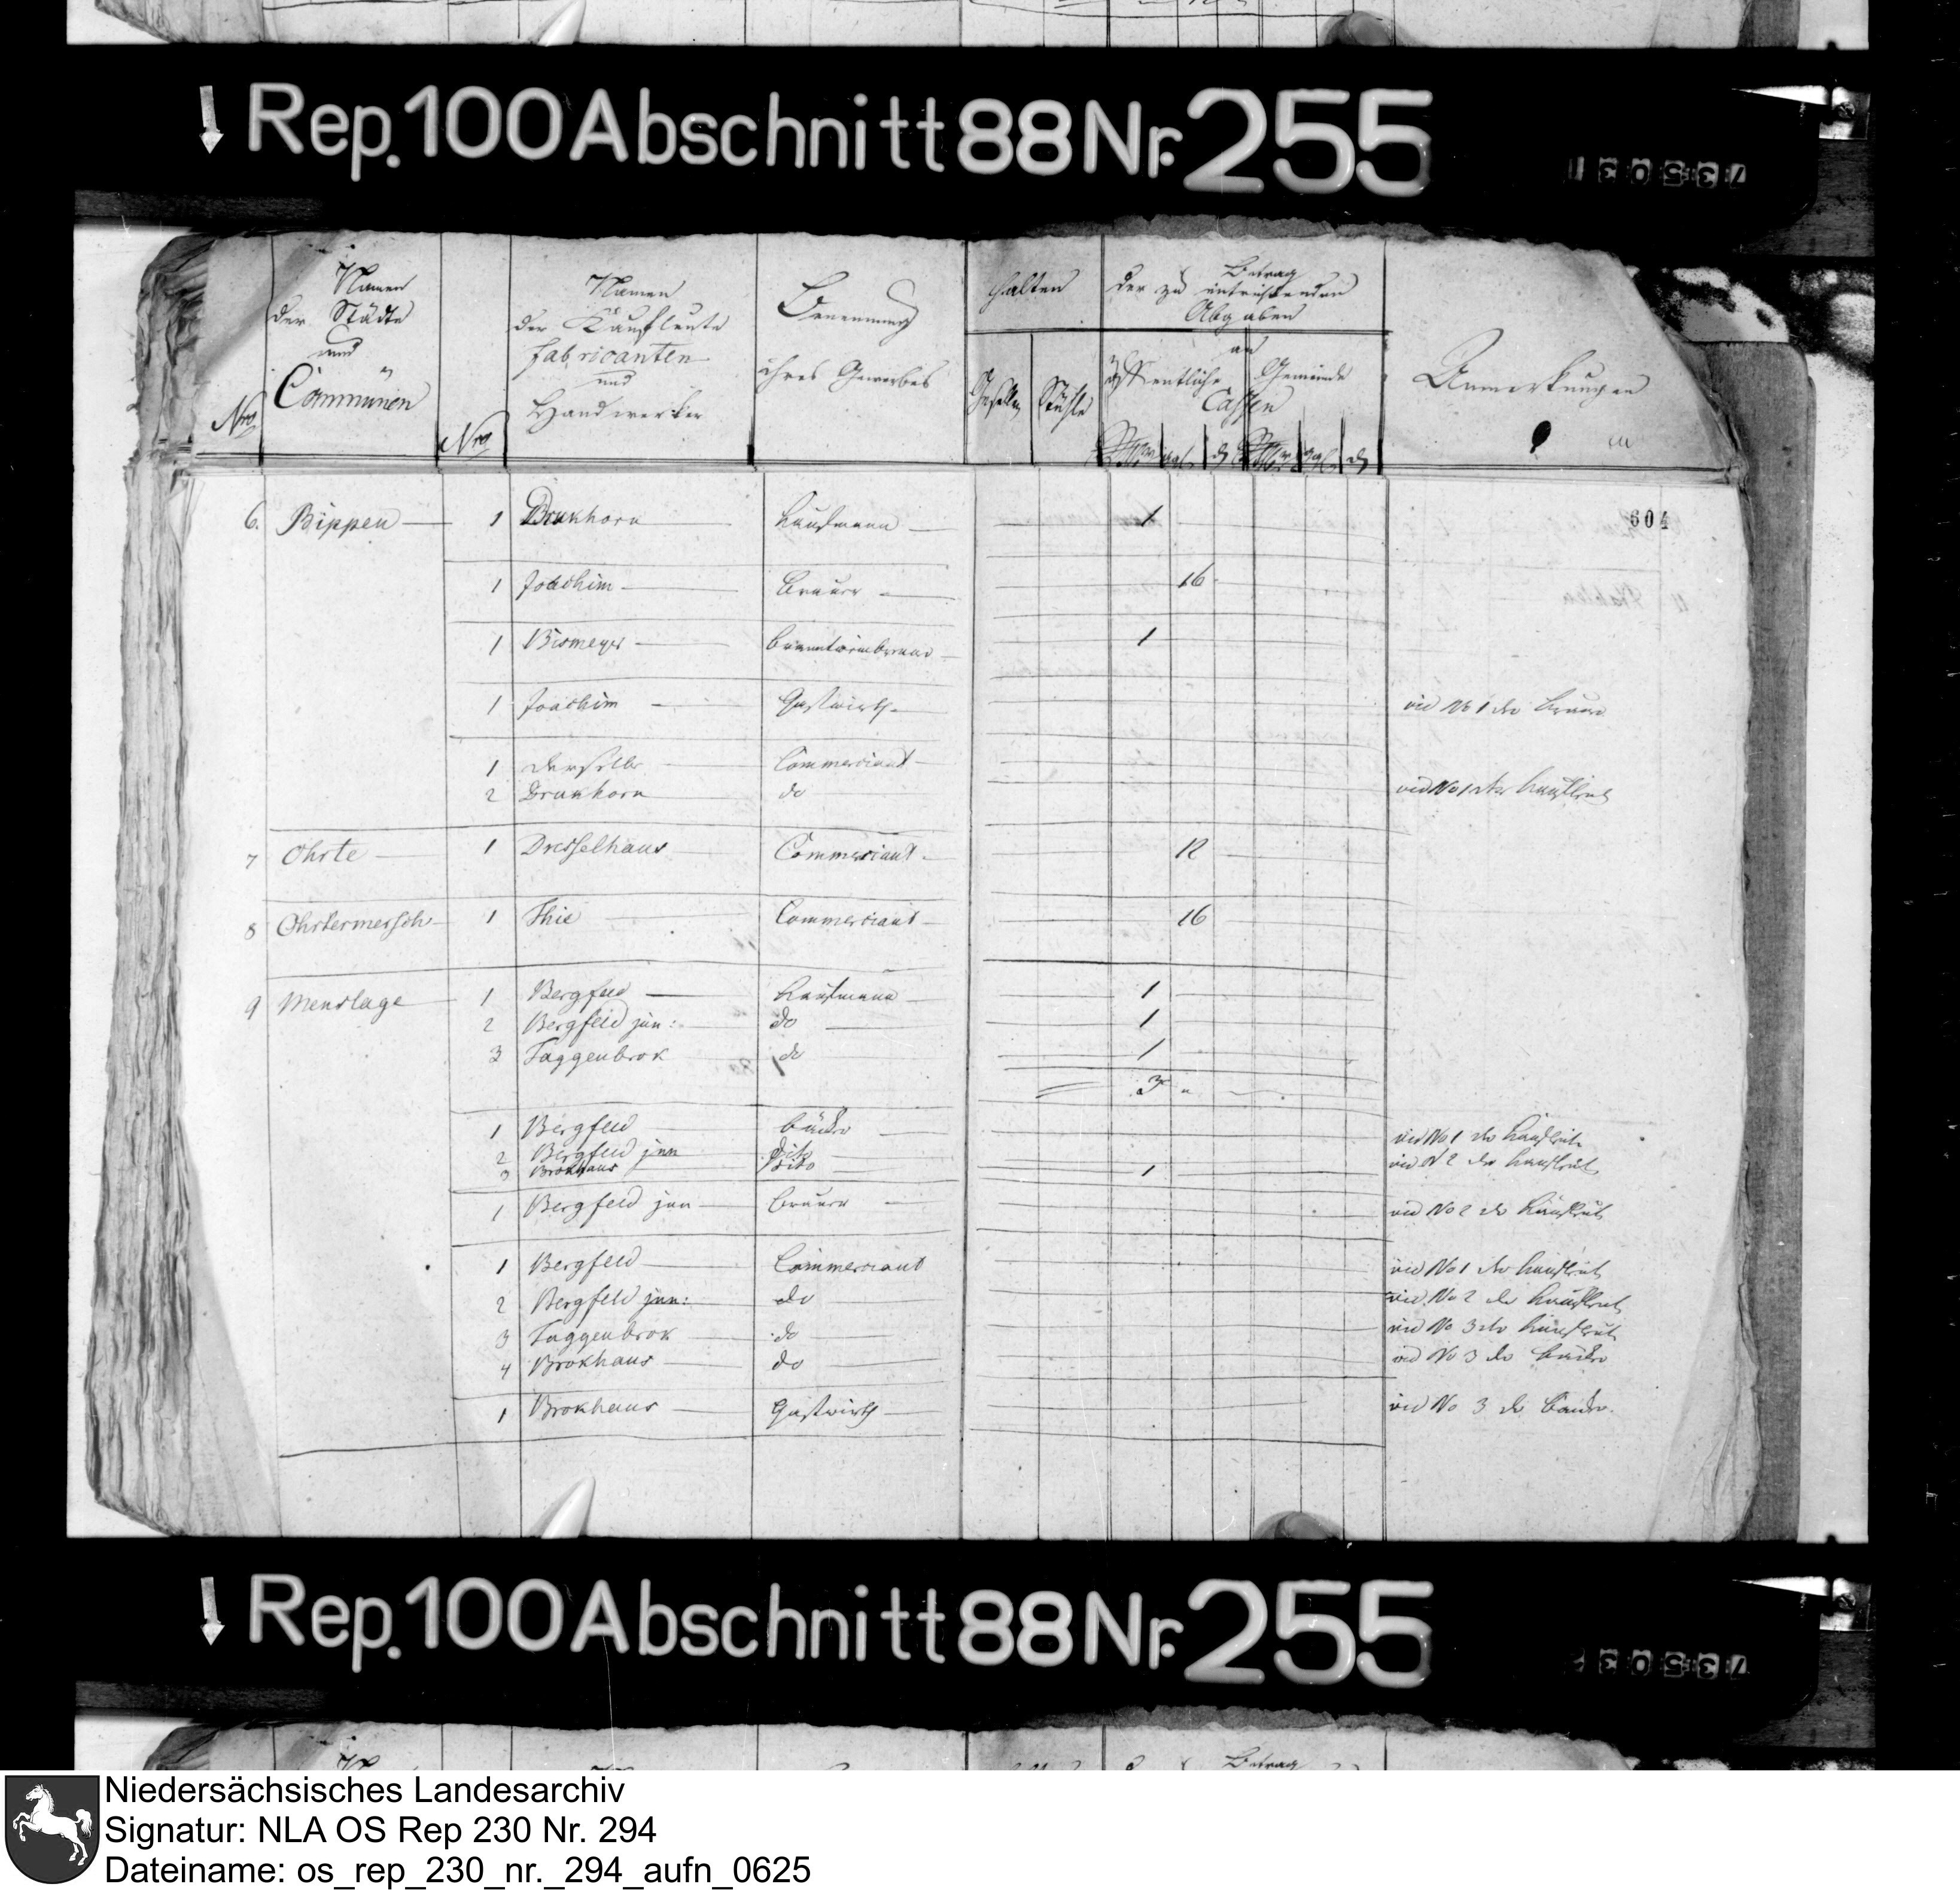 Rep. 100 Abschnitt 88 Nr. 255
Namen der Städte und Communen
Namen der Kaufleute fabricanten und Handwerker
Benennung ihres Gewerbes
halten
Gesellen Stühle
Betrag der zu entrichtenden Abgaben
an
öffentliche Gemeinde
Cassen
Anmerkungen
Nro
Nro
604
6. Bippen 1 Brukhorn Kaufmann 1
1 Joachim Brauer 16
1 Bismeyer 1
1 Joachim Gastwirth vid No 1 der Brauer
1 derselbe Commerciant
2 Brukhorn do vid No 1 der Kaufleute
7 Ohrte 1 Dresselhaus Commerciant 12
8 Ohrtermersch 1 Thie Commerciant 16
9 Menslage 1 Bergfeld Kaufmann 1
2 Bergfeld jun: do 1
3 Taggenbrok do 1
3
1 Bergfeld Bäcker vid No 1 der Kaufleute
2 Bergfeld jun dito vid N 2 der Kaufleute
3 Brokhaus dito 1
1 Bergfeld jun Brauer vid No 2 der Kaufleute
1 Bergfeld Commerciant vid No 1 der Kaufleute
2 Bergfeld jun: do vid No 2 der Kaufleute
3 Taggenbrok do vid No 3 der Kaufleute
4 Brokhaus do vid No 3 der Bäcker
1 Brokhaus Gastwirth vid No 3 der Bäcker
Rep. 100 Abschnitt 88 Nr. 255
Betrag
Niedersächsisches Landesarchiv
Signatur: NLA OS Rep 230 Nr. 294
Dateiname: os_rep_230_nr._294_aufn_0625